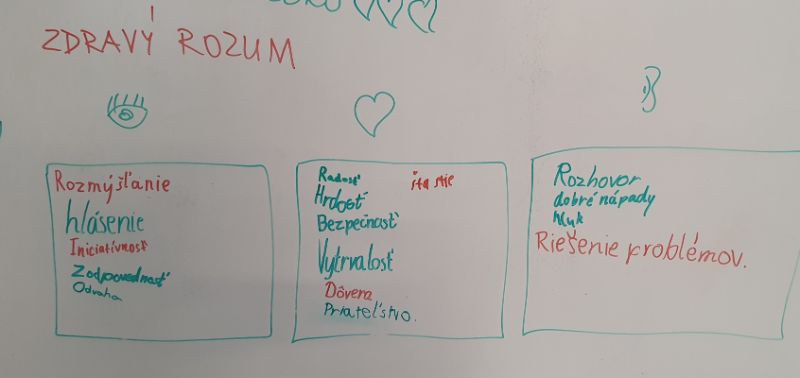 ZDRAVÝ ROZUM
Rozmýšľanie
hlásenie
Iniciatívnosť
Zodpovednosť
Odvaha
Radosť
Hrdosť
Bezpečnosť
Vytrvalosť
Dôvera
Priateľstvo.
Rozhovor
dobré nápady
hluk
Riešenie problémov.